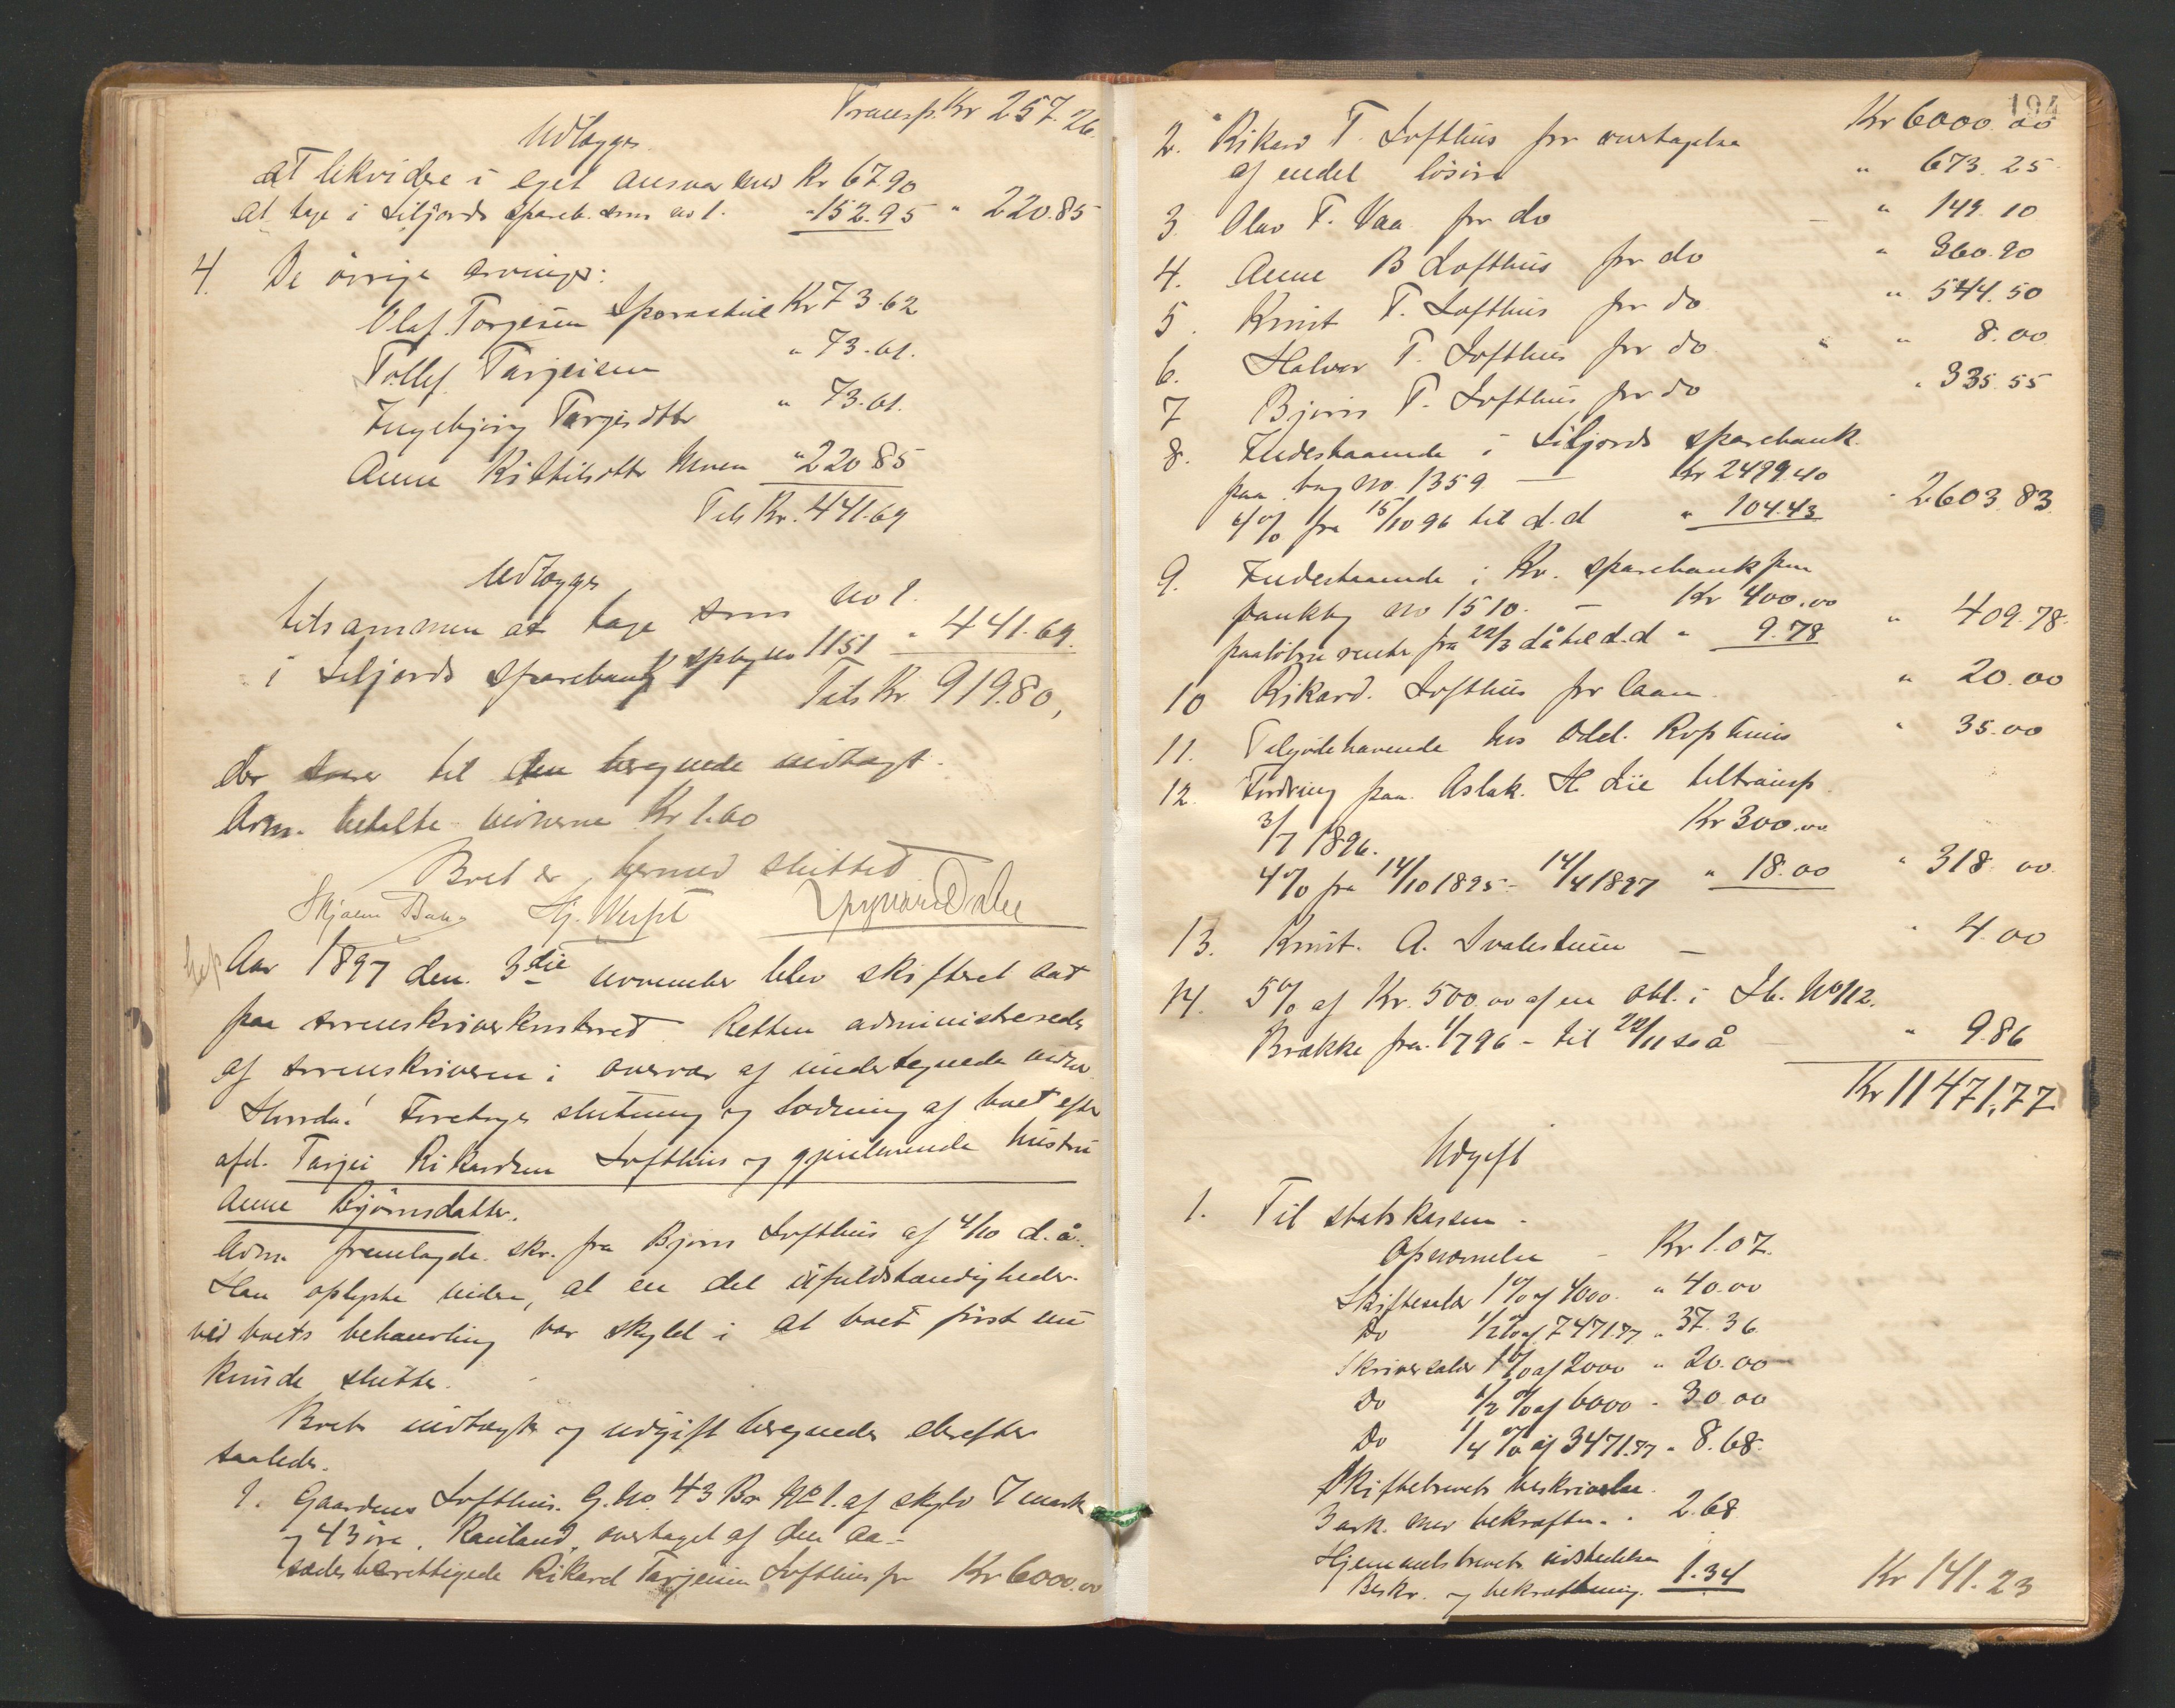 Transp. Kr 257.26.
Udlægges
at likvidere i eget ansvar med Kr 67.90
at tage i Siljords spareb. som no 1. " 152.95 " 220.85
4. De övrige arvinger:
Olaf Torgesen Sporastöil Kr 73.62
Tollef Tarjeisen " 73.61.
Ingebjörg Targesdtr " 73.61.
Anne Kittilsdtr Moen " 220.85
Tils Kr. 441.69
Udlægges
tilsammen at tage som no 1.
i Siljords sparebank spbg no 1151 " 441.69.
Tils Kr 919.80,
der svarer til den beregnede indtægt.
Adm. betalte vidnerne Kr 1.60
Boet er hermed sluttet
Aar 1897 den 3die november blev skifteret sat
paa sorenskriverkontoret. Retten administreredes
af sorenskriveren i overvær af undertegnede vidner.
Hvorda! Foretoges slutning og lodning af boet efter
afd. Tarjei Rikardsen Lofthus og gjenlevende hustru
Anne Bjørnsdatter.
Adm. fremlagde skr. fra Bjørn Lofthus af 4/10 d.å.
Han oplyste videre, at en del ufuldstændigheder
ved boets behandling var skyld i at boet först nu
kunde sluttes.
Boets indtægt og udgift beregnedes derefter
saaledes.
1. Gaarden Lofthus. G. No. 43 Br No 1. af skyld 7 mark
og 43 öre, Rauland, overtaget af den aa-
sædesberettigede Rikard Tarjeisen Lofthus for Kr 6000.00
194
Kr 6000.00
2. Rikard T. Lofthus for overtagelse
af endel lösöre " 673.25
3. Olav T. Vaa for do " 149.10
4. Anne B Lofthus for do " 360.90
5. Knut T. Lofthus for do " 544.50
6. Halvor T. Lofthus for do " 8.00
7 Bjørn T. Lofthus for do " 335.55
8. Indestaaende i Siljords sparebank
paa bog no 1359 — Kr 2499.40
4% fra 15/10 96 til d.d " 104.43 " 2603.83
9. Indestaaende i Kv. sparebank paa
bankbg no 1510. — Kr 400.00
paalöbne rente fra 22/3 då til d.d " 9.78 " 409.78.
10 Rikard. Lofthus for laan " 20.00
11. Tilgodehavende hos Odd. " 35.00
12. Fordring paa Aslak. H. Lie tiltransp.
3/7 1896. Kr 300.00
4% fra 14/10 1895 - 14/4 1897 " 18.00 " 318.00
13. Knut. A. — " 4.00
14. 5% af Kr. 500.00 af en obl. i Lb. No 112.
Brække fra 1/7 96 - til 22/11 så " 9.86
Kr 11471.77
Udgift
1. Til statskassen.
Opnævnelse — Kr 1.07.
Skiftesalær 1% af 4000. " 40.00
Do 1/2% af 7471.77 " 37.36
Skriversalær 1% af 2000 " 20.00
Do 1/2% af 6000 " 30.00
Do 1/4% af 3471.77 " 8.68.
Skiftebrevets beskrivelse.
3 ark. med bekræften. " 2.68
Hjemmelsbrevets udstedelse
Beskr. og bekræftning. 1.34 Kr 141.23